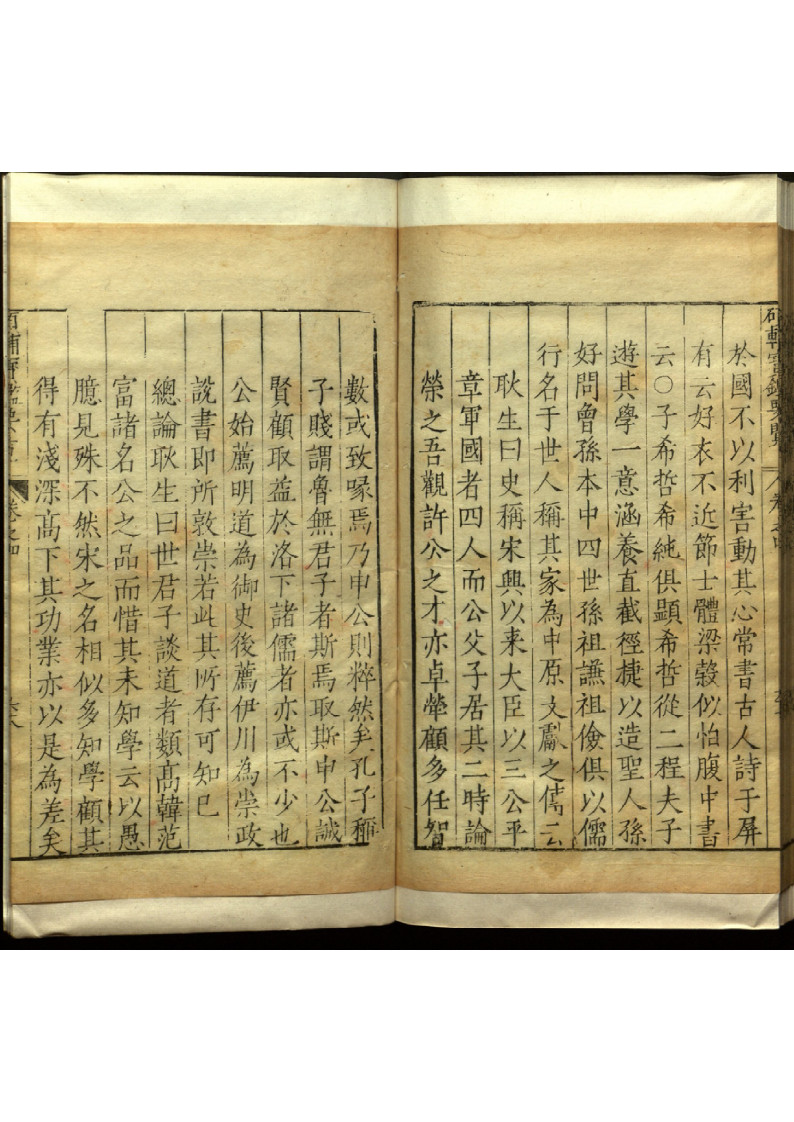 於國不以利害動其心常書古人詩于屏
有云好衣不近節士體梁穀似怕腹中書
云○子希哲希純俱顕希哲從二程夫子
遊其學一意涵養直截徑捷以造聖人孫
好問曾孫本中四世孫祖謙祖儉俱以儒
行名于世人稱其家為中原文獻之傳云
耿生曰史稱宋興以来大臣以三公平
章軍國者四人而公父子居其二時論
榮之吾觀許公之才亦卓犖顧多任智
數或致喙焉乃申公則粹然矣孔子稱
子賤謂魯無君子者斯焉取斯申公誠
賢顧取益於洛下諸儒者亦或不少也
公始薦明道為御史後薦伊川為崇政
說書即所敦崇若此其所存可知已
總論耿生曰世君子談道者類高韓范
富諸名公之品而惜其未知學云以愚
臆見殊不然宋之名相似多知學顧其
得有淺深高下其功業亦以是為差矣
卷之四